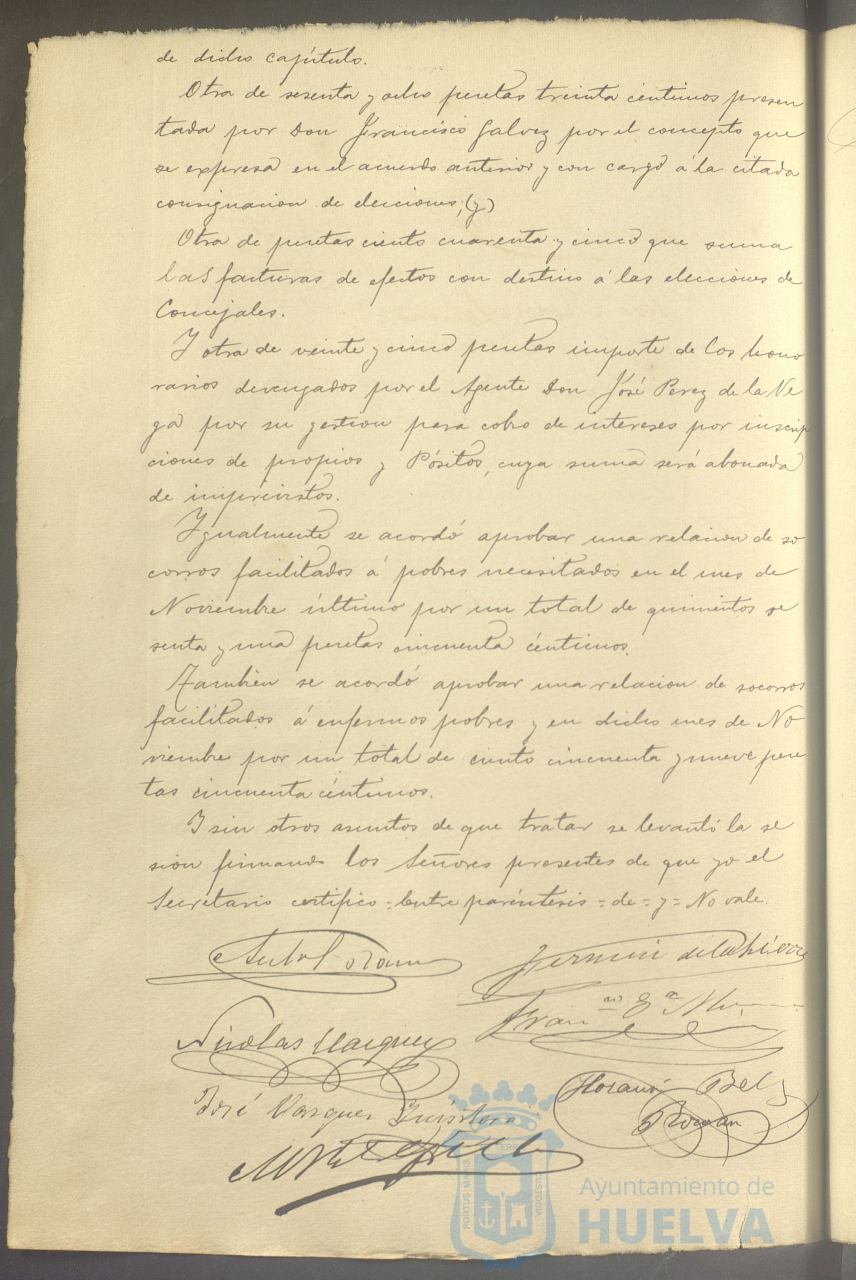 de dicho capítulo.
Otra de sesenta y ocho pesetas treinta céntimos presen
tada por Don Francisco Galvez por el concepto que
se expresa en el acuerdo anterior y con cargo á la citada
consignacion de elecciones, (y)
Otra de pesetas ciento cuarenta y cinco que suma
las facturas de efectos con destino á las elecciones de
Concejales.
Y otra de veinte y cinco pesetas importe de los hono
rarios devengados por el Agente Don José Perez de la Ve
ga por su gestion para cobro de intereses por inscrip
ciones de propios y Pósitos, cuya suma será abonada
de imprevistos.
Igualmente se acordó aprobar una relacion de so
corros facilitados á pobres necesitados en el mes de
Noviembre último por un total de quinientos se
senta y una pesetas cincuenta céntimos.
Tambien se acordó aprobar una relacion de socorros
facilitados á enfermos pobres y en dicho mes de No
viembre por un total de ciento cincuenta y nueve pese
tas cincuenta céntimos.
Y sin otros asuntos de que tratar se levantó la se
sion firmando los Señores presentes de que yo el
Secretario certifico = Entre paréntesis = de = y = No vale.
Fermin de la
Fran.co
Nicolas Vazquez
José Vazquez
Bel
Roman
PORTUS MARIS
TERRAE
CUSTODIA
Ayuntamiento de
HUELVA